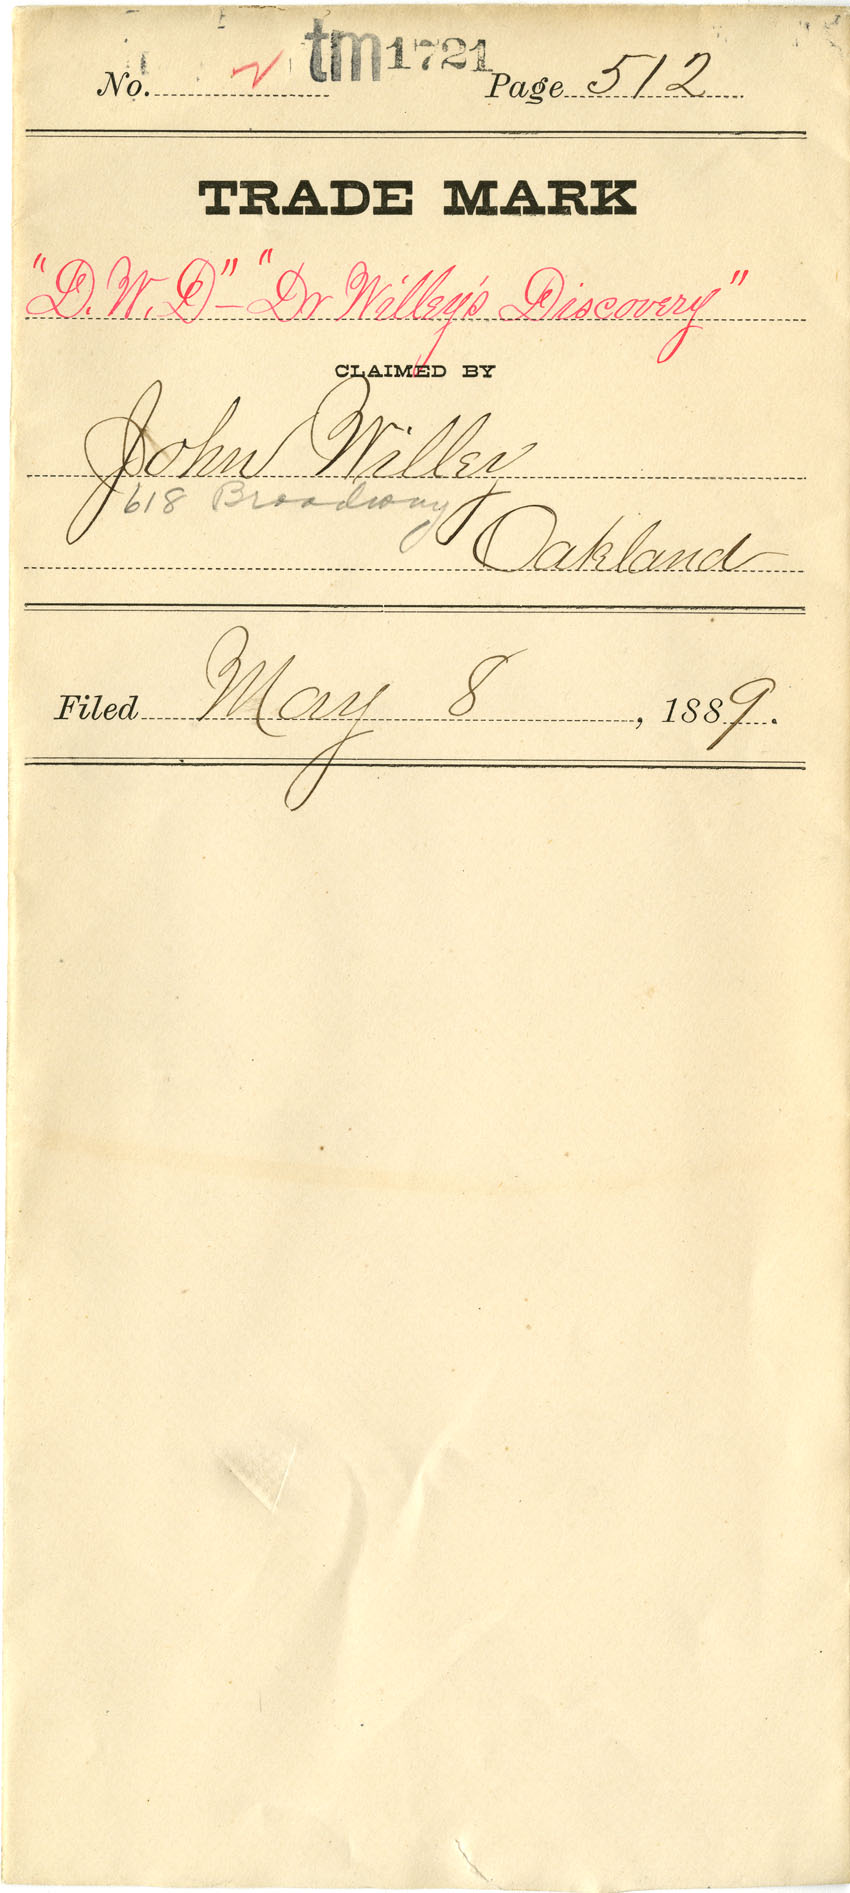 No. tm 1721 Page 512
TRADE MARK
"D.W.D" - "Dr Willey's Discovery"
CLAIMED BY
John Willey
618 Broadway
Oakland
Filed May 8, 1889.